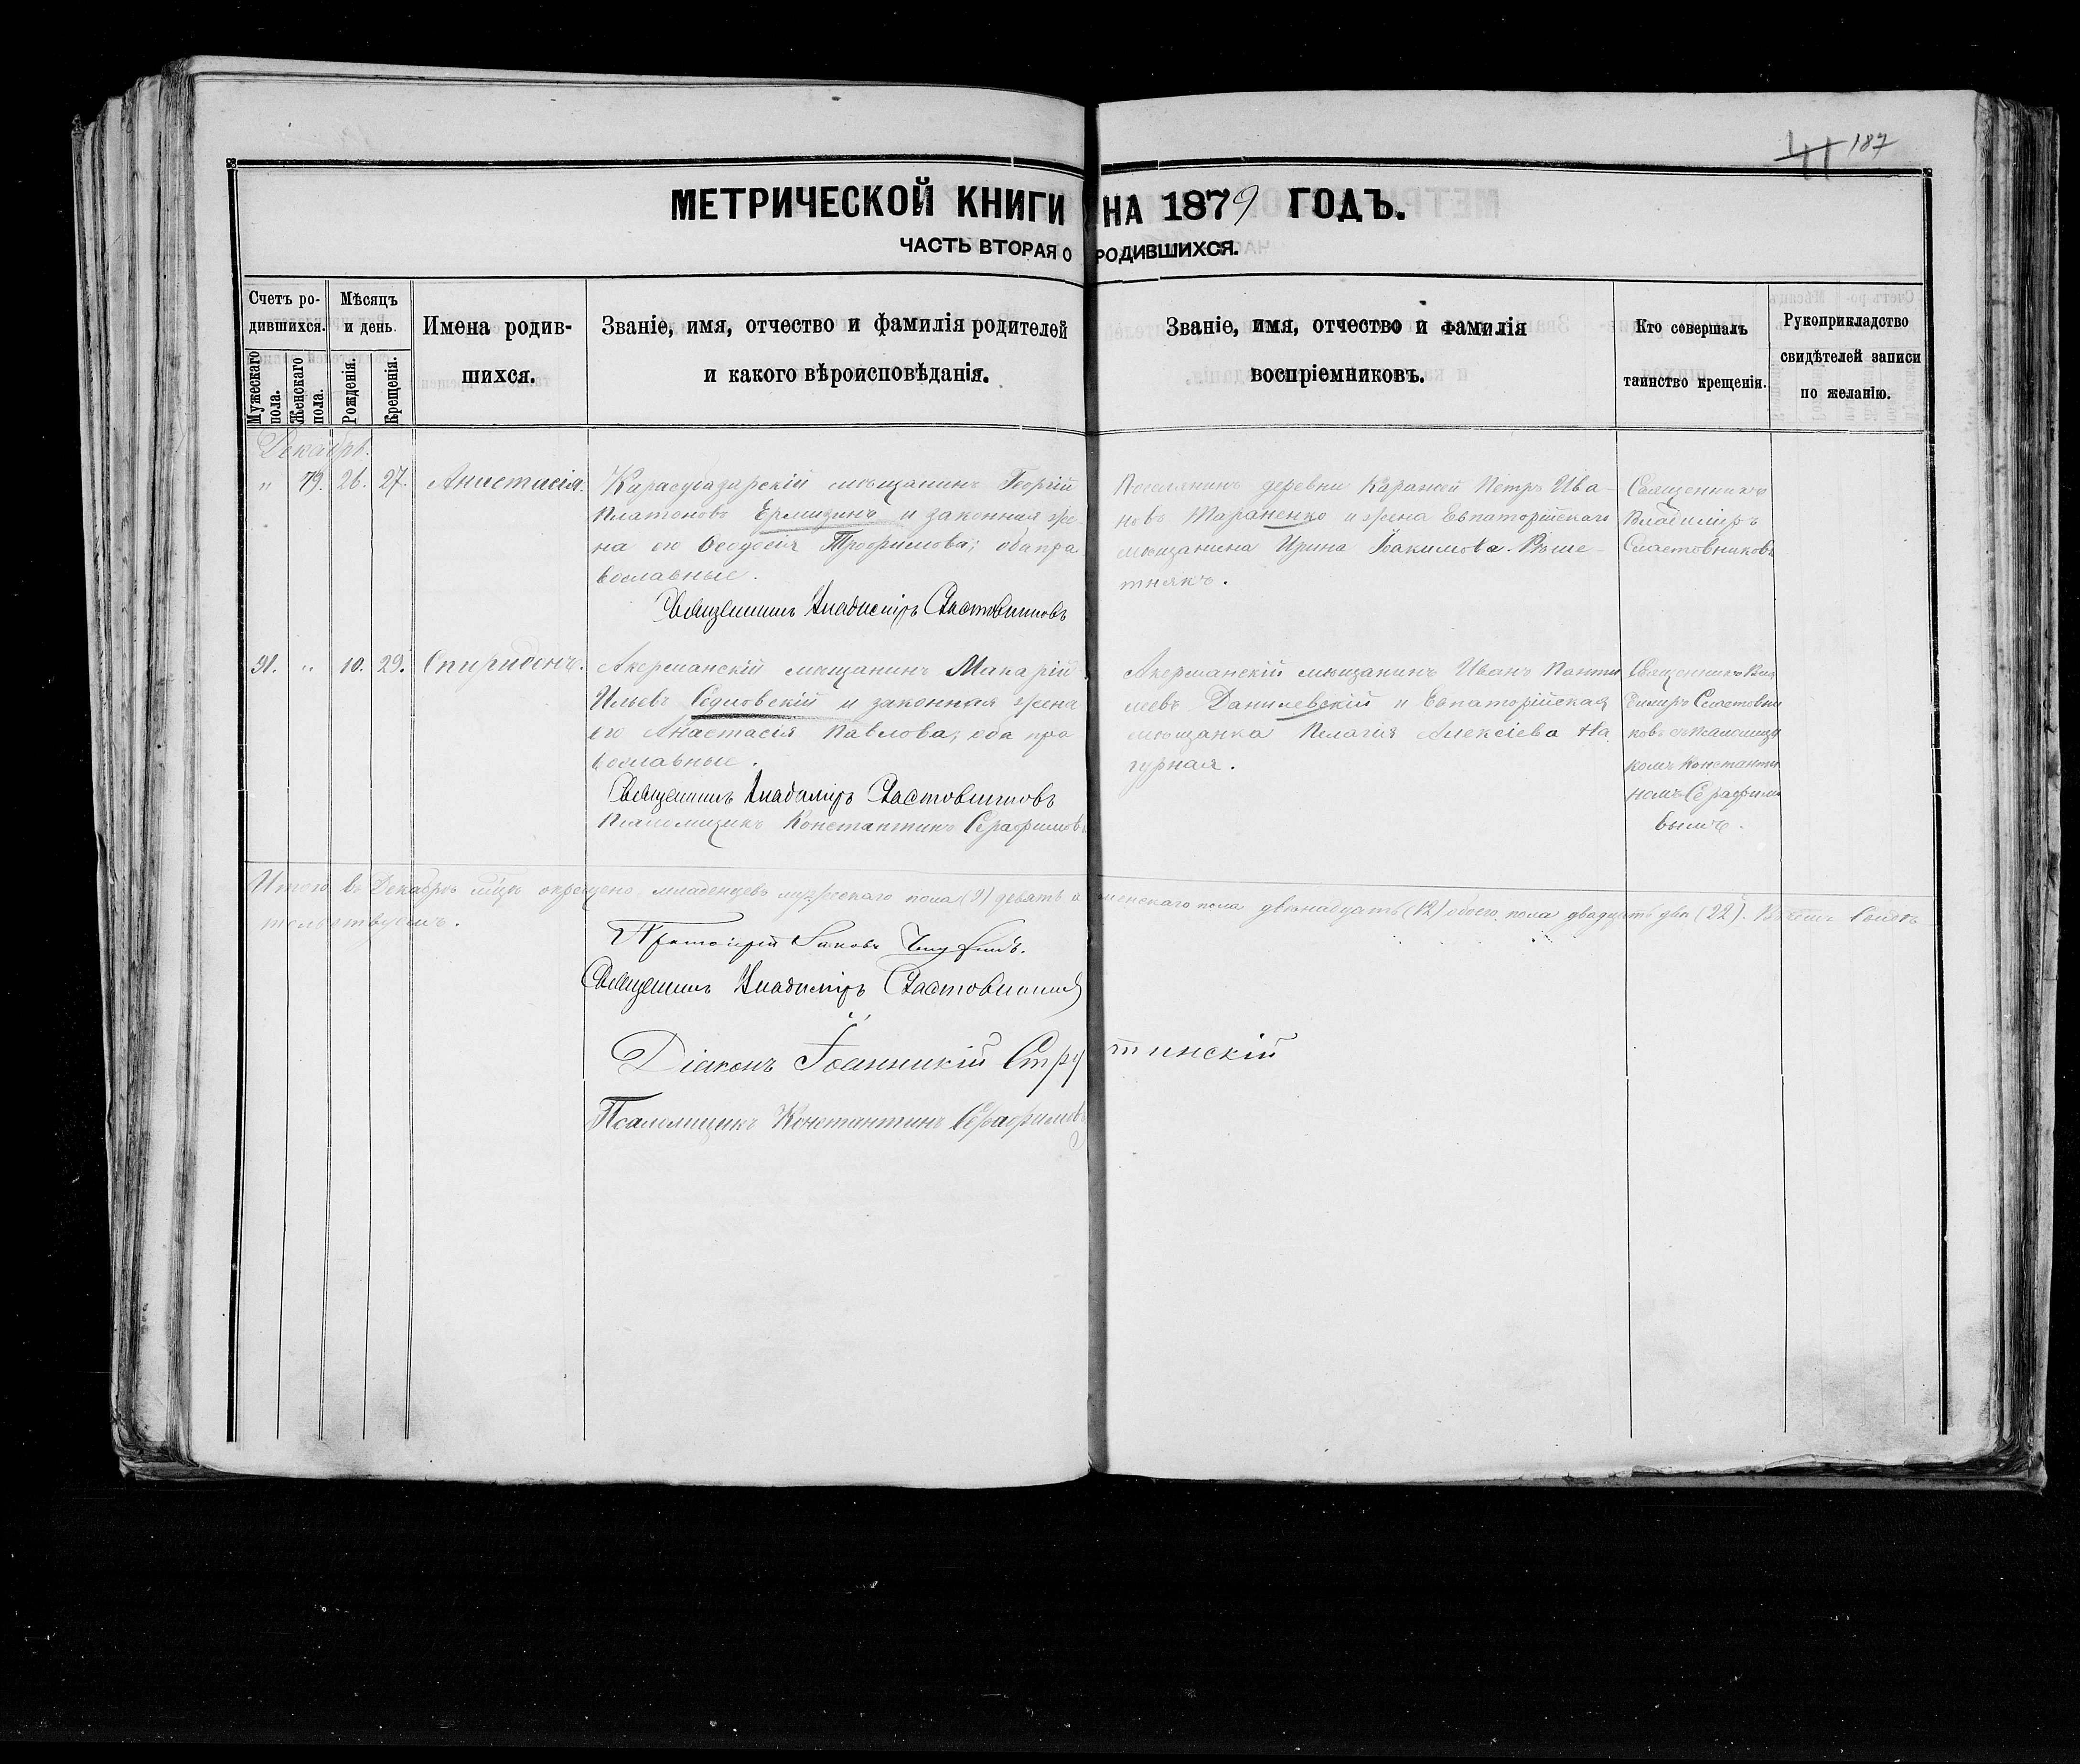 187
МЕТРИЧЕСКОЙ КНИГИ НА 1879 ГОДЪ.
ЧАСТЬ ВТОРАЯ О РОДИВШИХСЯ.
Счетъ ро-
дившихся.
Мужескаго
пола.
Женскаго
пола.
Мѣсяцъ
и день.
Рожденія.
Крещенія.
Имена родив-
шихся.
Званіе, имя, отчество и фамилія родителей
и какого вѣроисповѣданія.
Званіе, имя, отчество и фамилія
воспріемниковъ.
Кто совершалъ
таинство крещенія.
Рукоприкладство
свидѣтелей записи
по желанію.
Декабрь.
" 79. 26. 27. Анастасія.
Карасубазарскій мѣщанинъ Георгій
Платоновъ Ермизинъ и законная же-
на его Ѳеодосія Трофимова; оба пра
вославные.
Священникъ Владиміръ Сластовниковъ
Поселянинъ деревни Каранжей Петръ Ива-
новъ Тараненко и жена Евпаторійскаго
мѣщанина Ирина Іоакимова Рѣше-
тнякъ.
Священникъ
Владиміръ
Сластовниковъ
91. " 10. 29. Спиридонъ.
Акерманскій мѣщанинъ Макарій
Ильевъ Седловскій и законная жена
его Анастасія Павлова; оба пра
вославные.
Священникъ Владиміръ Сластовниковъ
Псаломщикъ Константинъ Серафимовъ
Акерманскій мѣщанинъ Иванъ Панти
леевъ Данилевскій и Евпаторійская
мѣщанка Пелагія Алексіева На
гурная.
Священникъ Вла
диміръ Сластовни
ковъ съ псаломщи
комъ Константи
номъ Серафимо
вымъ.
Итого въ Декабрѣ мѣсяцѣ окрещено младенцевъ мужескаго пола (9) девять а женскаго пола двѣнадцать (12) обоего пола двадцать два (22). Въ чемъ свидѣ
тельствуемъ.
Протоіерей Іаковъ
Священникъ Владиміръ Сластовниковъ
Діаконъ Іоанникій Струтинскій
Псаломщикъ Константинъ Серафимовъ